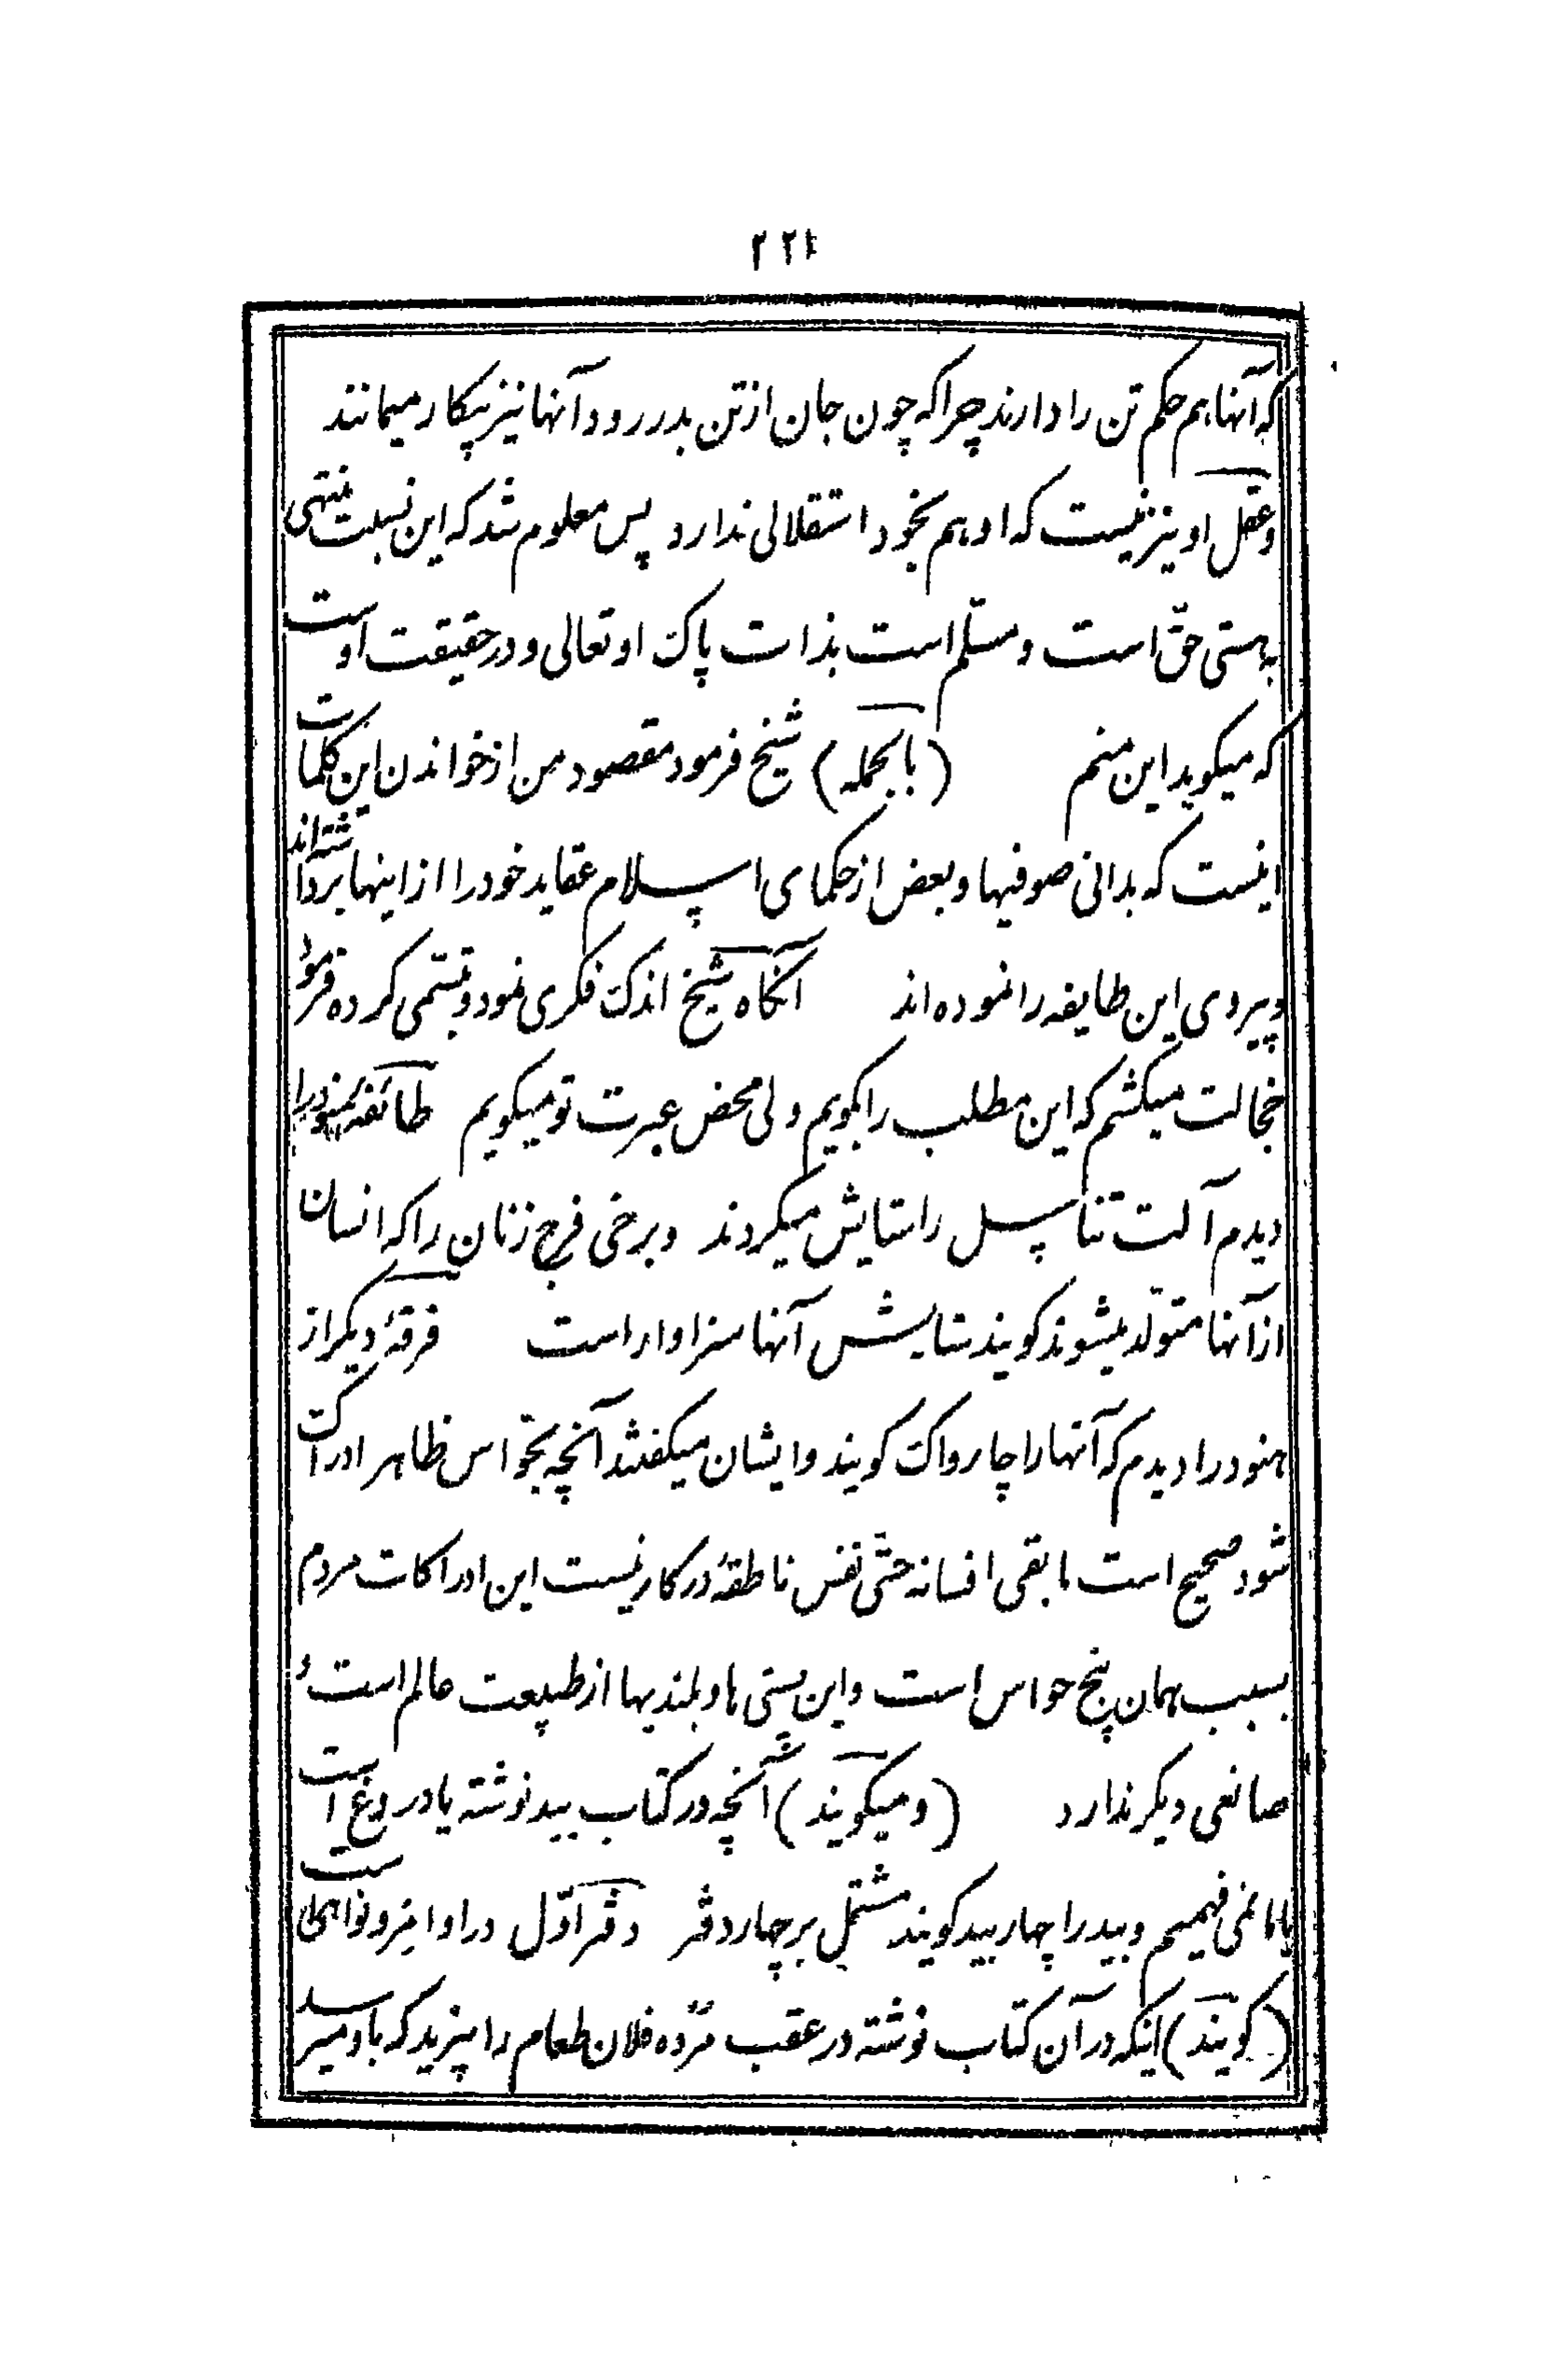 ٢٢١
که آنها هم حکم تن را دارند چرا که چون جان از تن بدر رود آنها نیز بیکار میمانند
وعقل او نیز نیست که او هم بخود استقلالی ندارد پس معلوم شد که این نسبت منتهی
به هستی حقّ است و مسلّم است بذات پاک او تعالی و در حقیقت اوست
که میکوید این منم (بالجمله) شیخ فرمود مقصود من از خواندن این کلمات
اینست که بدانی صوفیها و بعض از حکمای اسلام عقاید خود را از اینها برداشته‌اند
وپیروی این طایفه را نموده اند آنکاه شیخ اندک فکری نمود و تبسّمی کرده فرمود
خجالت میکشم که این مطلب را بکویم ولی محض عبرت تو میکویم طائفهٔ هنود را
دیدم آلت تناسل را ستایش میکردند و برخی فرج زنان را که انسان
از آنها متولّد میشوند کویند ستایش آنها سزاوار است فرقهٔ دیکر از
هنود را دیدم که آنها را چارواک کویند و ایشان میکفتند آنچه بحوّاس ظاهر ادراک
شود صحیح است مابقی افسانه حتّی نفس ناطقهٔ در کار نیست این ادراکات مردم
بسبب همان پنج حواس است و این پستی ها و بلندیها از طبیعت عالم است و
صانعی دیکر ندارد (و میکویند) آنچه در کتاب بید نوشته یا دروغ است
یا ما نمی فهمیم و بید را چهار بید کویند مشتمل بر چهار دفتر دفتر اوّل در اوامر و نواهی است
(کویند) اینکه در آن کتاب نوشته در عقب مرده فلان طعام را بپزید که باو میرسد